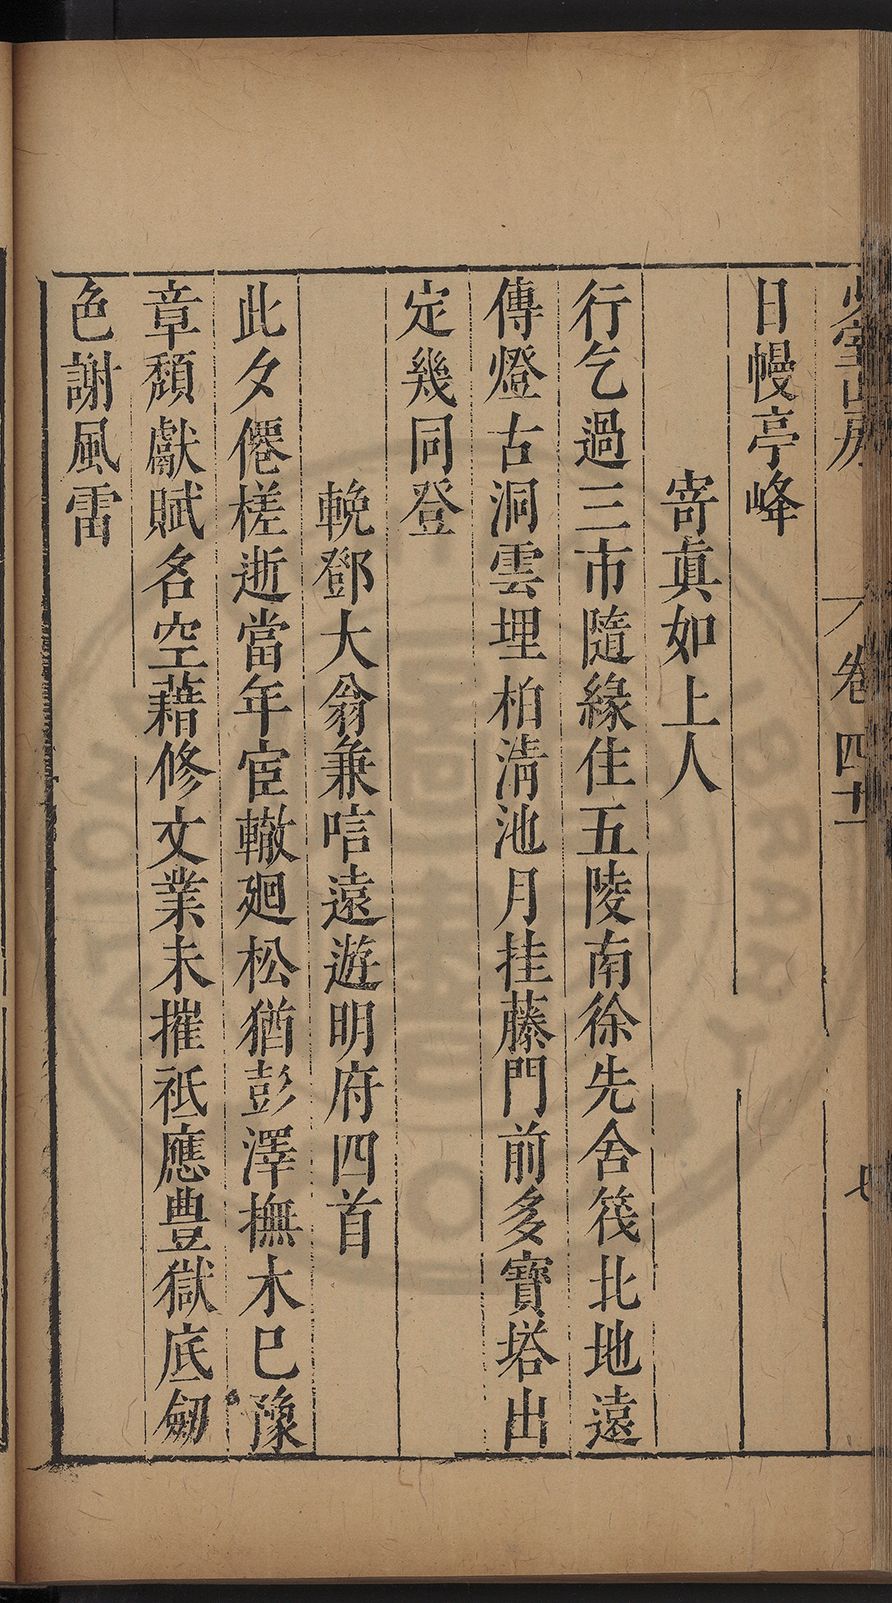 少室山房 卷四十 七
日幔亭峰
寄真如上人
行乞過三市隨緣住五陵南徐先舍筏北地遠
傳燈古洞雲埋柏清池月挂藤門前多寶塔出
定幾同登
輓鄧大翁兼唁遠遊明府四首
此夕僊槎逝當年宦轍廻松猶彭澤撫木巳豫
章頹獻賦名空藉修文業未摧祇應豊獄底劒
色謝風雷